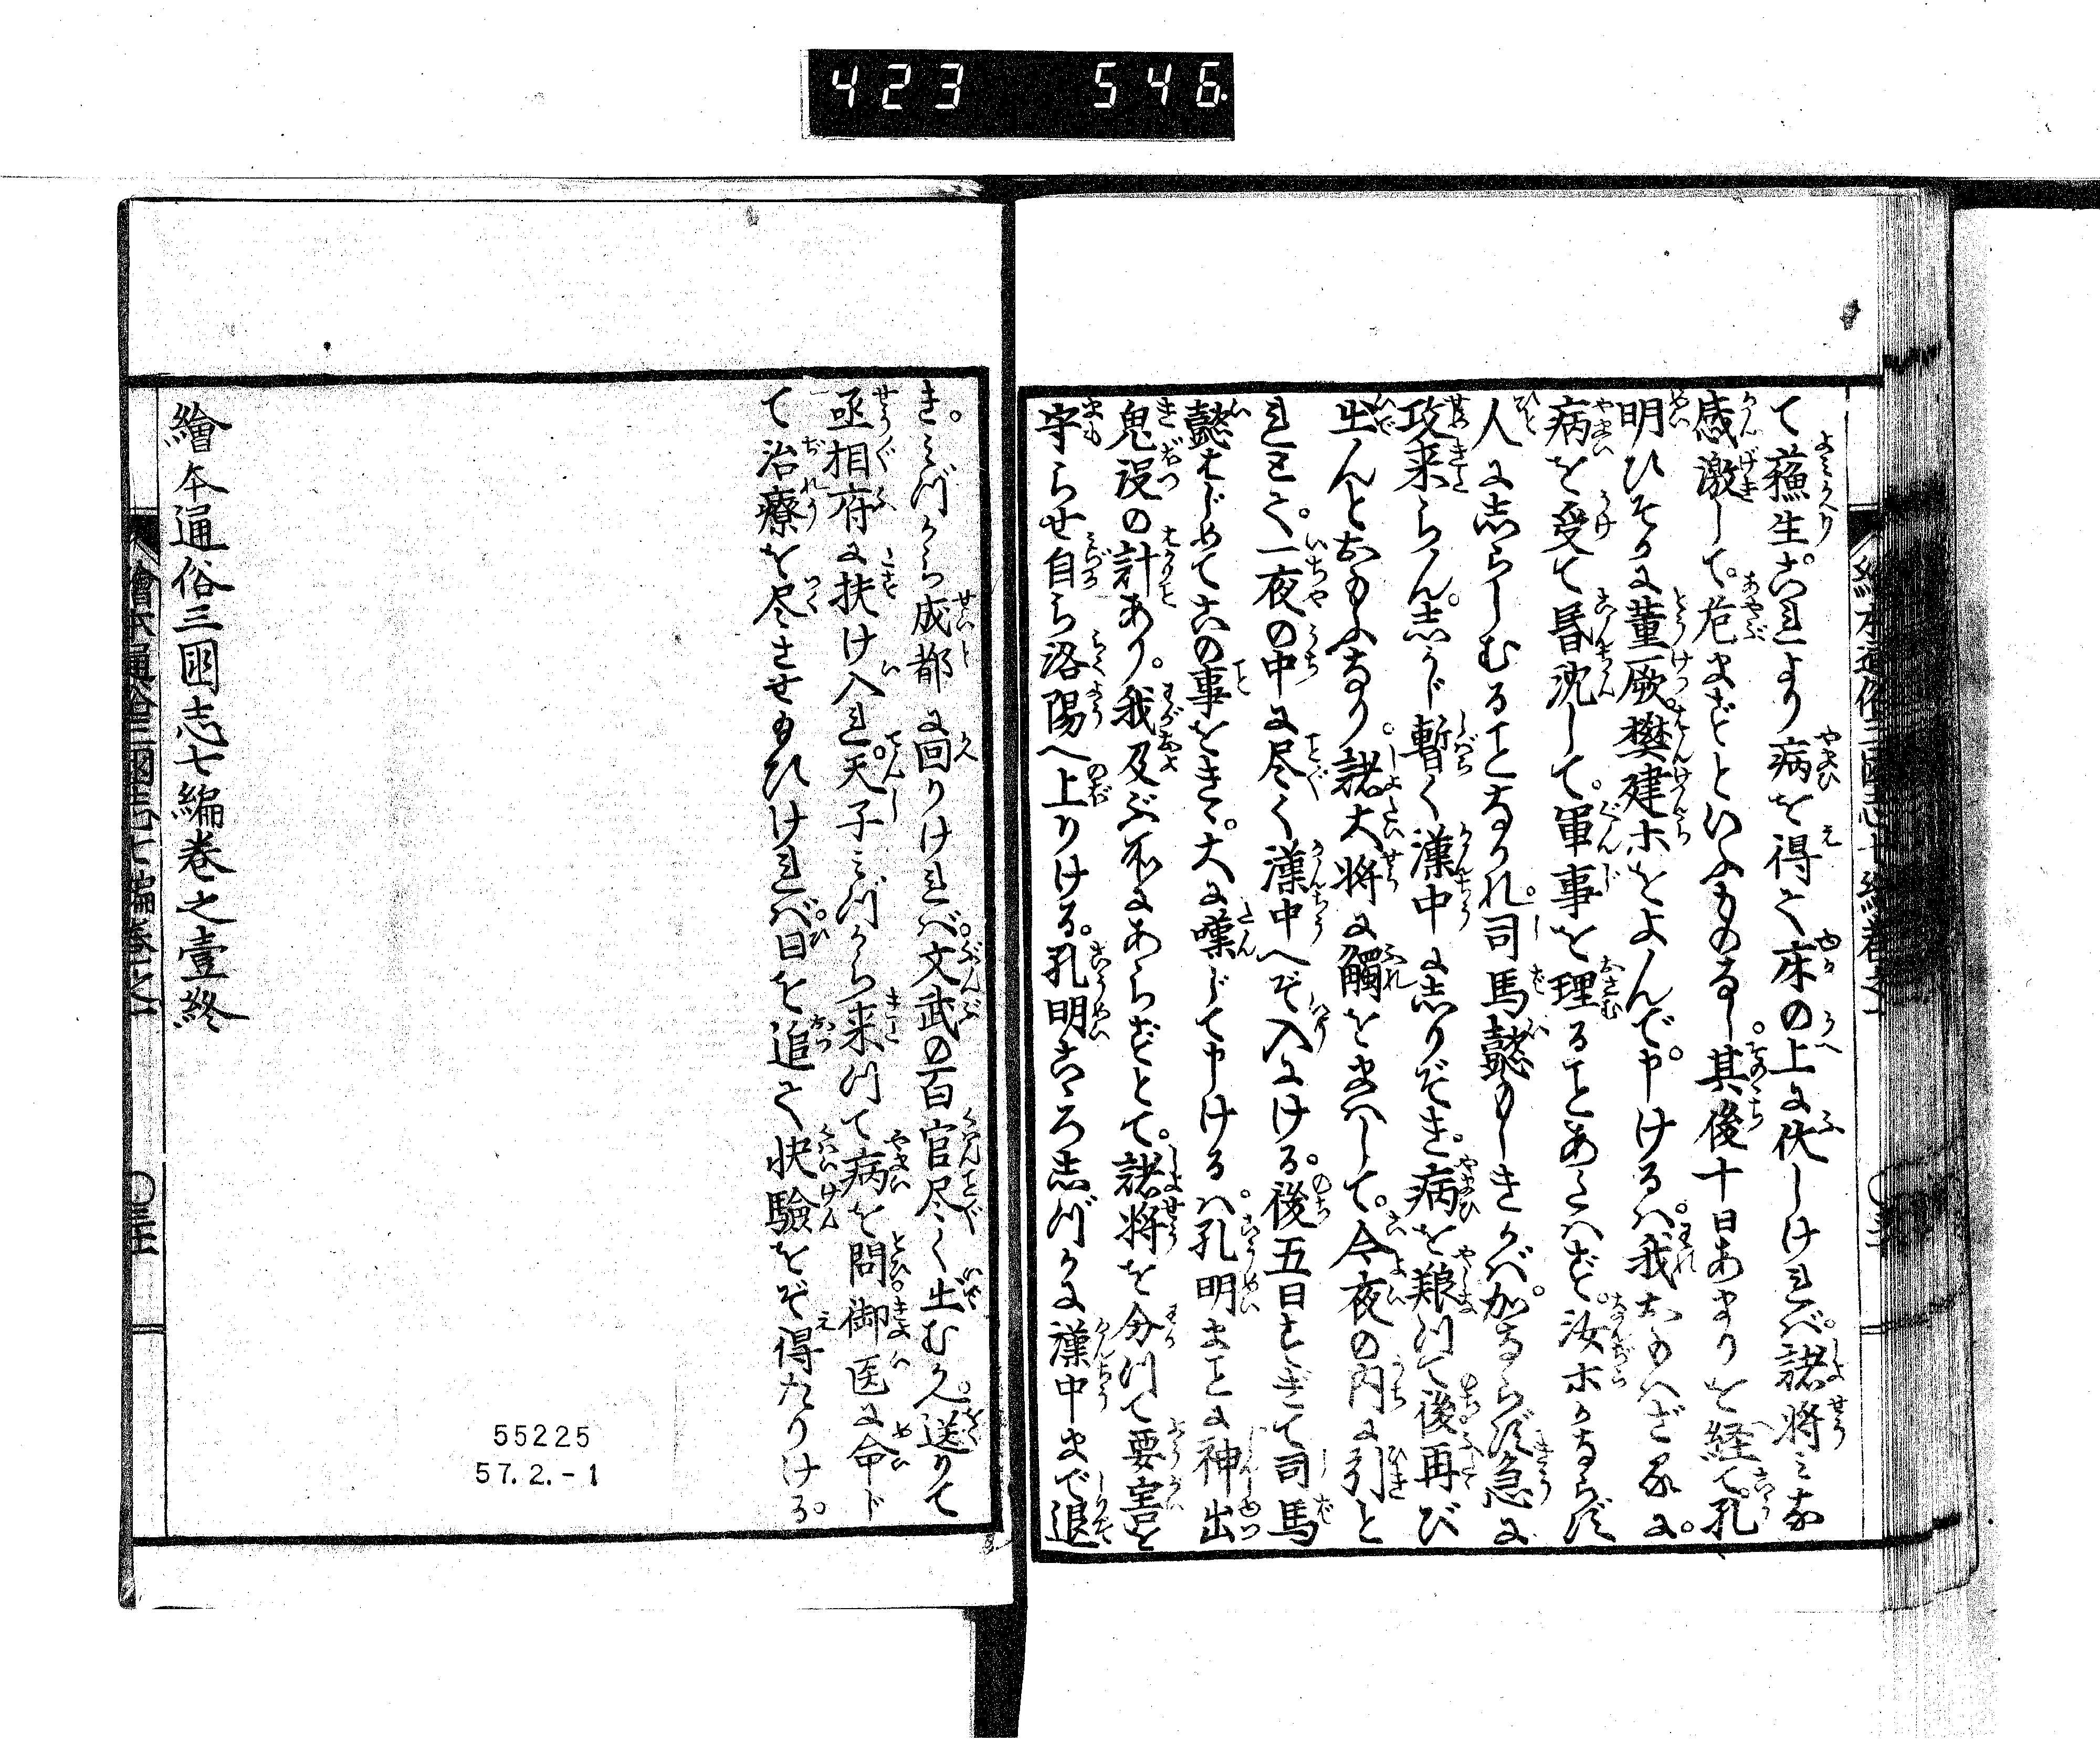 423 546.
て蘓生。これより病を得て床の上に伏しければ。諸将みな
感激して。危まずといふものなし。其後十日あまりを経て。孔
明ひそかに董厥。樊建ホをよんで。申けるハ。我おもハざるに。
病を受て昏沈して。軍事を理ることあたハず。汝ホかならず
人に志らしむることなかれ。司馬懿もしきかバ。かならず急に
攻来らん。志かじ暫く漢中に志りぞき。病を艱つて後再び
出んとおもふなり。諸大将に觸をまハして。今夜の内に引と
れとて。一夜の中に尽く漢中へぞ入にける。後五日すぎて司馬
懿はじめてこの事をきゝ。大に嘆じて申けるハ。孔明まことに神出
鬼没の計あり。我及ぶ所にあらずとて。諸将を分つて要害を
守らせ自ら洛陽へ上りける。孔明こゝろ志づかに漢中まで退
き。みづから成都に回りければ。文武の百官尽く出むかへ。送りて
丞相府に扶け入れ。天子みづから来つて病を問。御医に命じ
て治療を尽させ給ひければ。日を追て快驗をぞ得たりける。
繪本通俗三國志七編巻之壹終
55225
57.2.-1